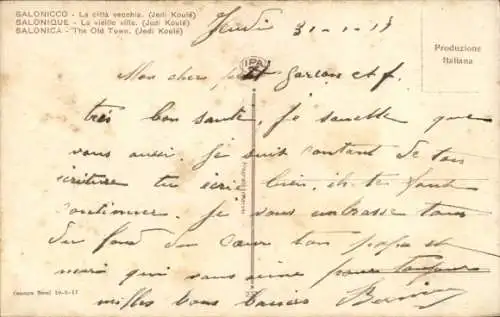 SALONICCO - La città vecchia. (Jedi Koulé)
SALONIQUE - La vieille ville. (Jedi Koulé)
SALONICA - The Old Town. (Jedi Koulé)
Jeudi 31-1-18
IPA
Produzione
Italiana
Mon cher petit garçon et f.
très bon santé, je souette que
vous aussi. je suit contant de ton
écriture tu écrit bien, ih te faut
continuer. Je vous embrasse tous
du fond du cœur ton papa et
mari qui vous aime pour toujours
milles bons baisers
Censura